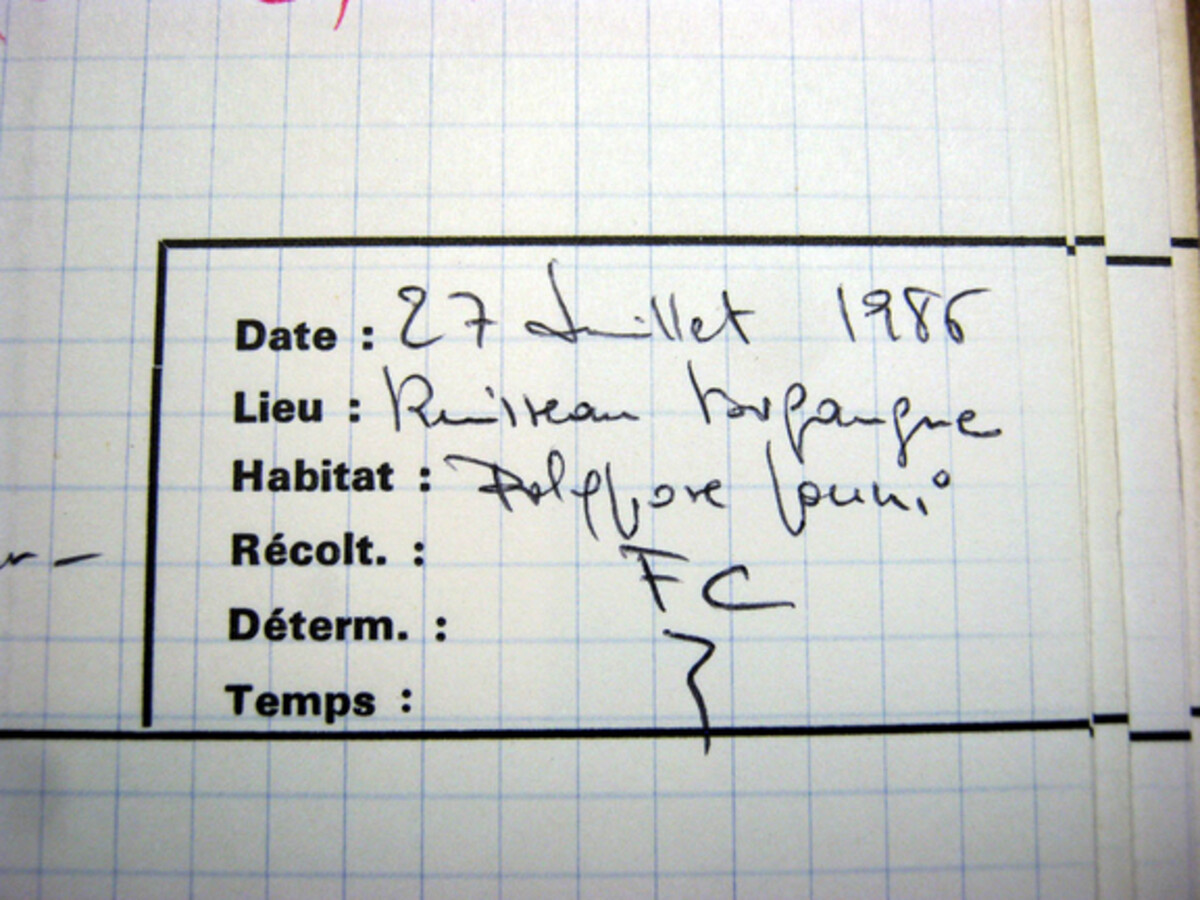 Date : 27 Juillet 1986
Lieu : Ruisseau
Habitat : Polypore
Récolt. : FC
Déterm. :
Temps :